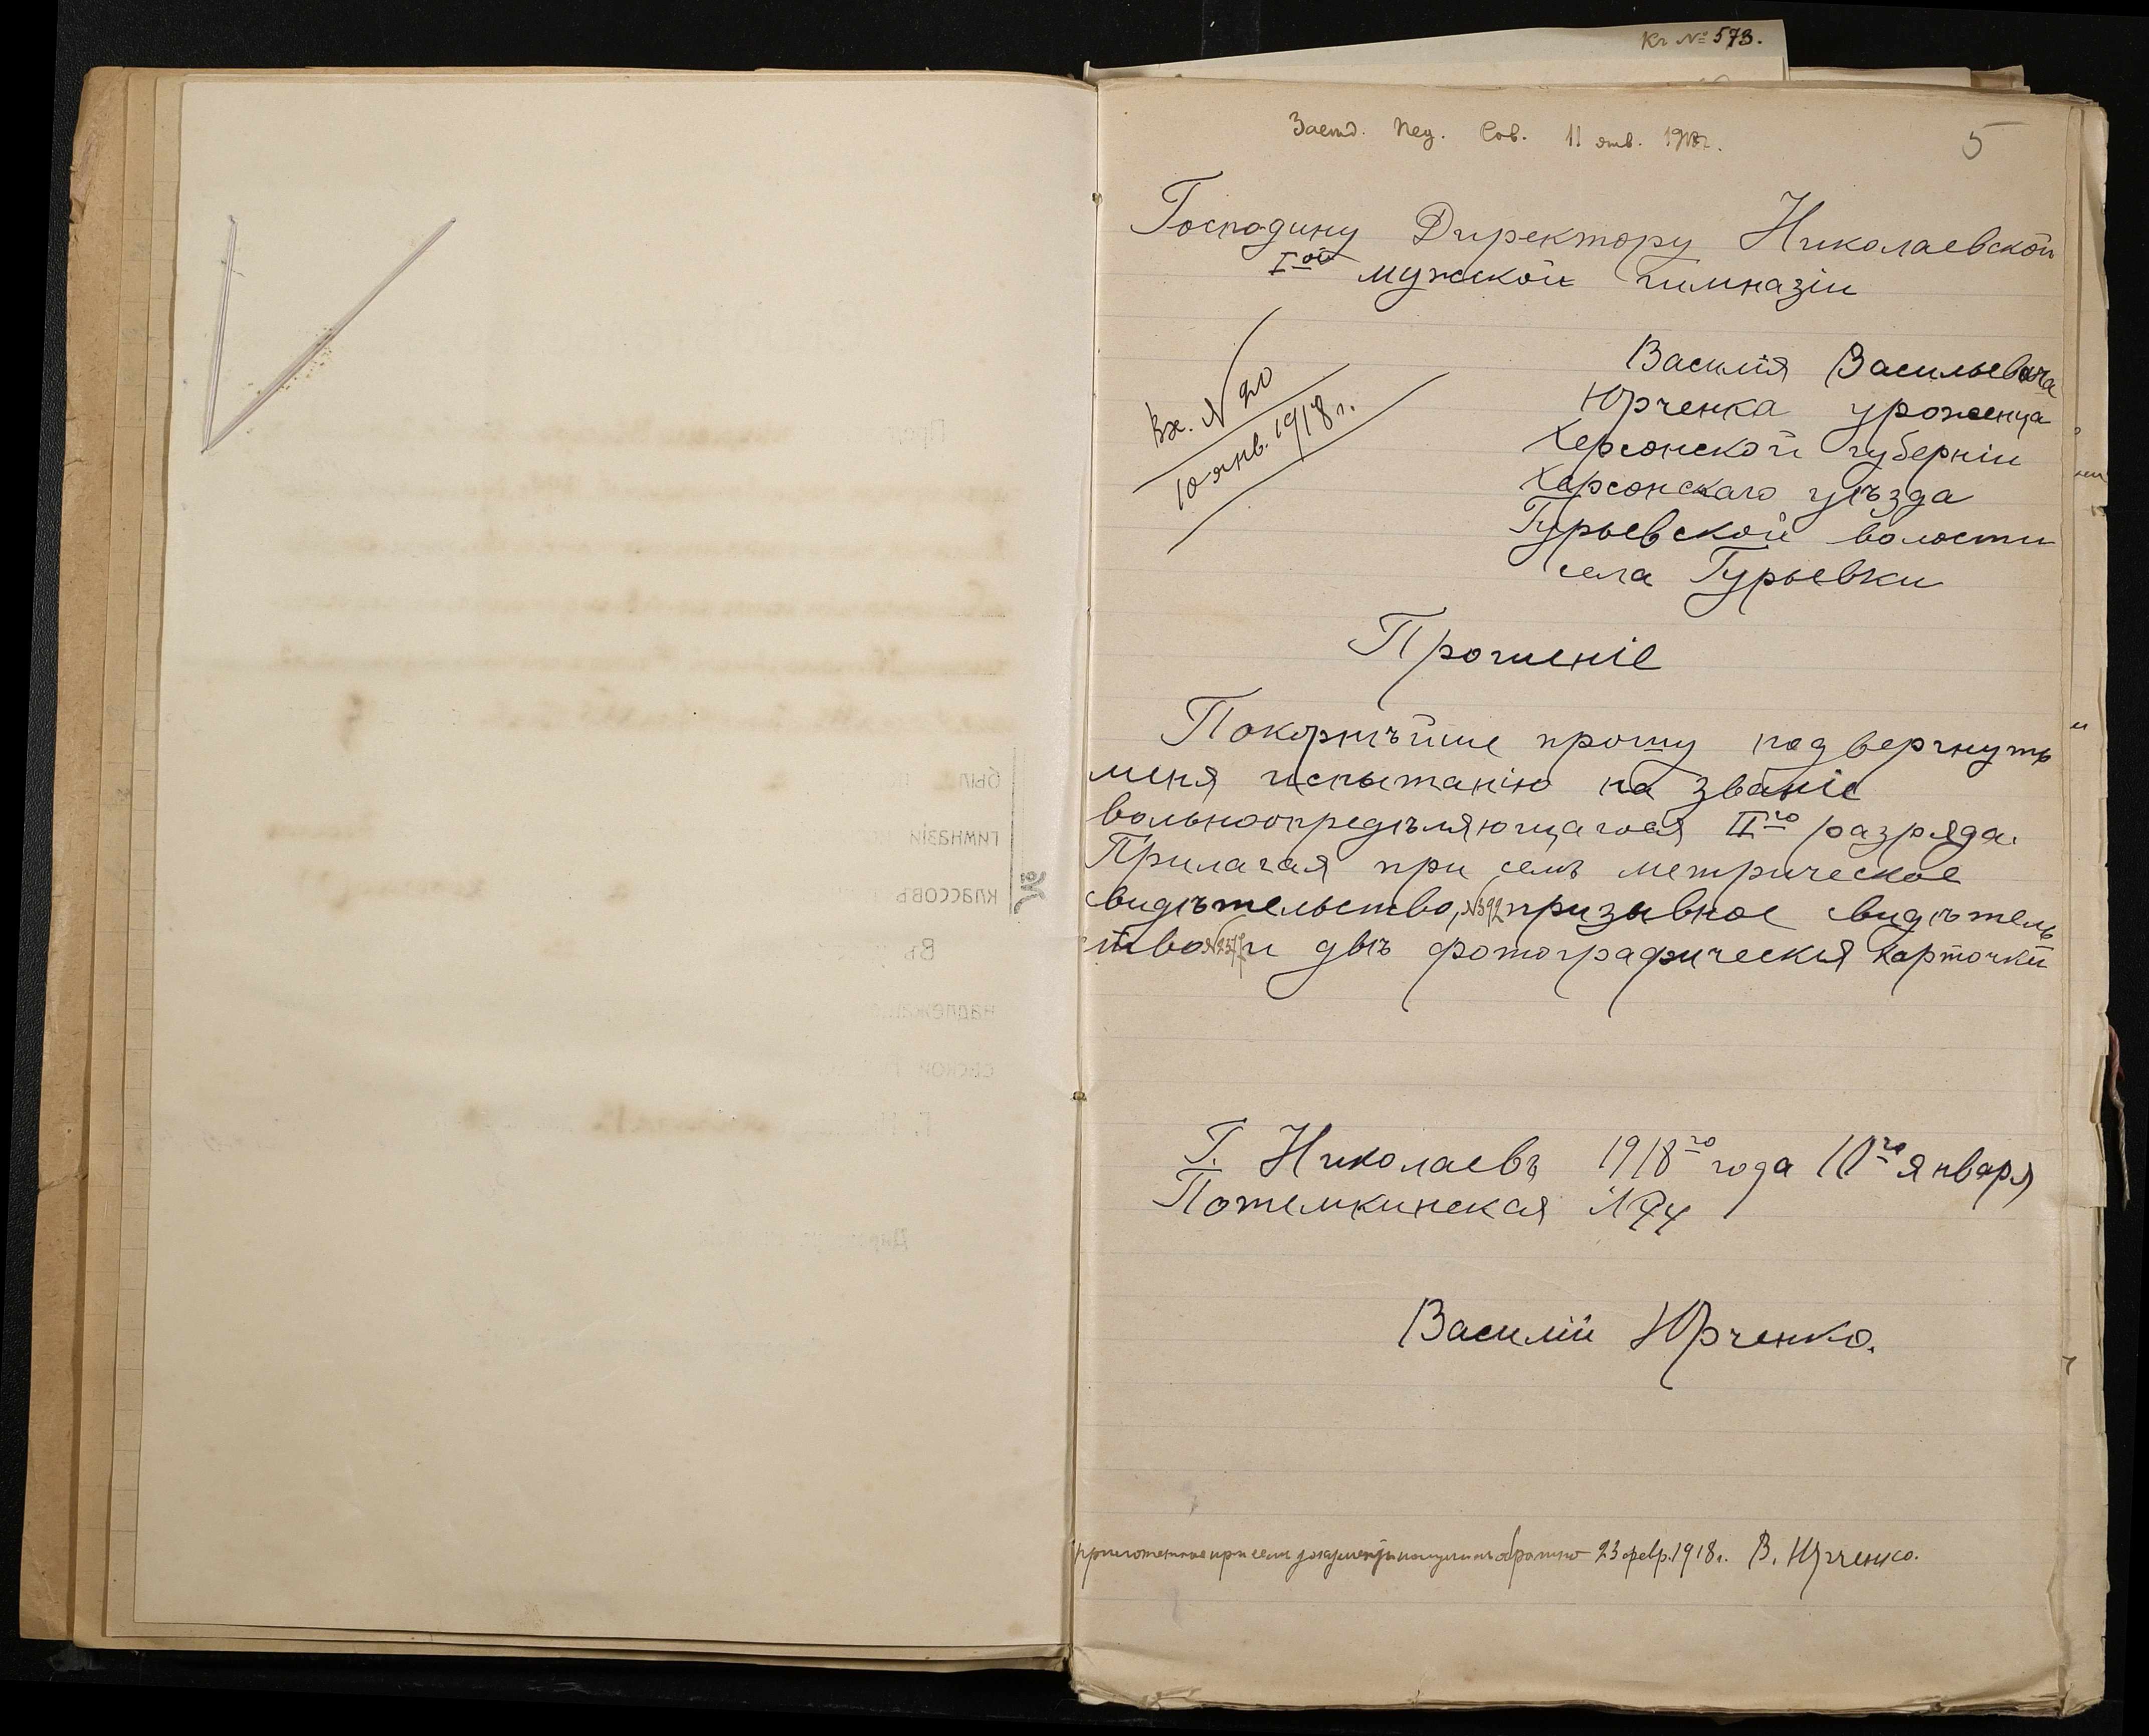 Кг № 573.
Засѣд. Пед. Сов. 11 янв. 1918 г.
5
Господину Директору Николаевской
I-ой мужской гимназіи
Вх. № 20
10 янв. 1918 г.
Василія Васильевича
Юрченка уроженца
Херсонской губерніи
Херсонскаго уѣзда
Гурьевской волости
села Гурьевки
Прошеніе
Покорнѣйше прошу подвергнуть
меня испытанію на званіе
вольноопредѣляющагося II-го разряда.
Прилагая при семъ метрическое
свидѣтельство, №392 призывное свидѣтель
ство и двѣ фотографическія карточки
Г. Николаевъ 1918-го года 10-го января
Потемкинская №
Василій Юрченко.
приложенные при семъ документы получилъ обратно 23 февр. 1918 г. В. Юрченко.
был
гимназіи
классовъ
№
Въ